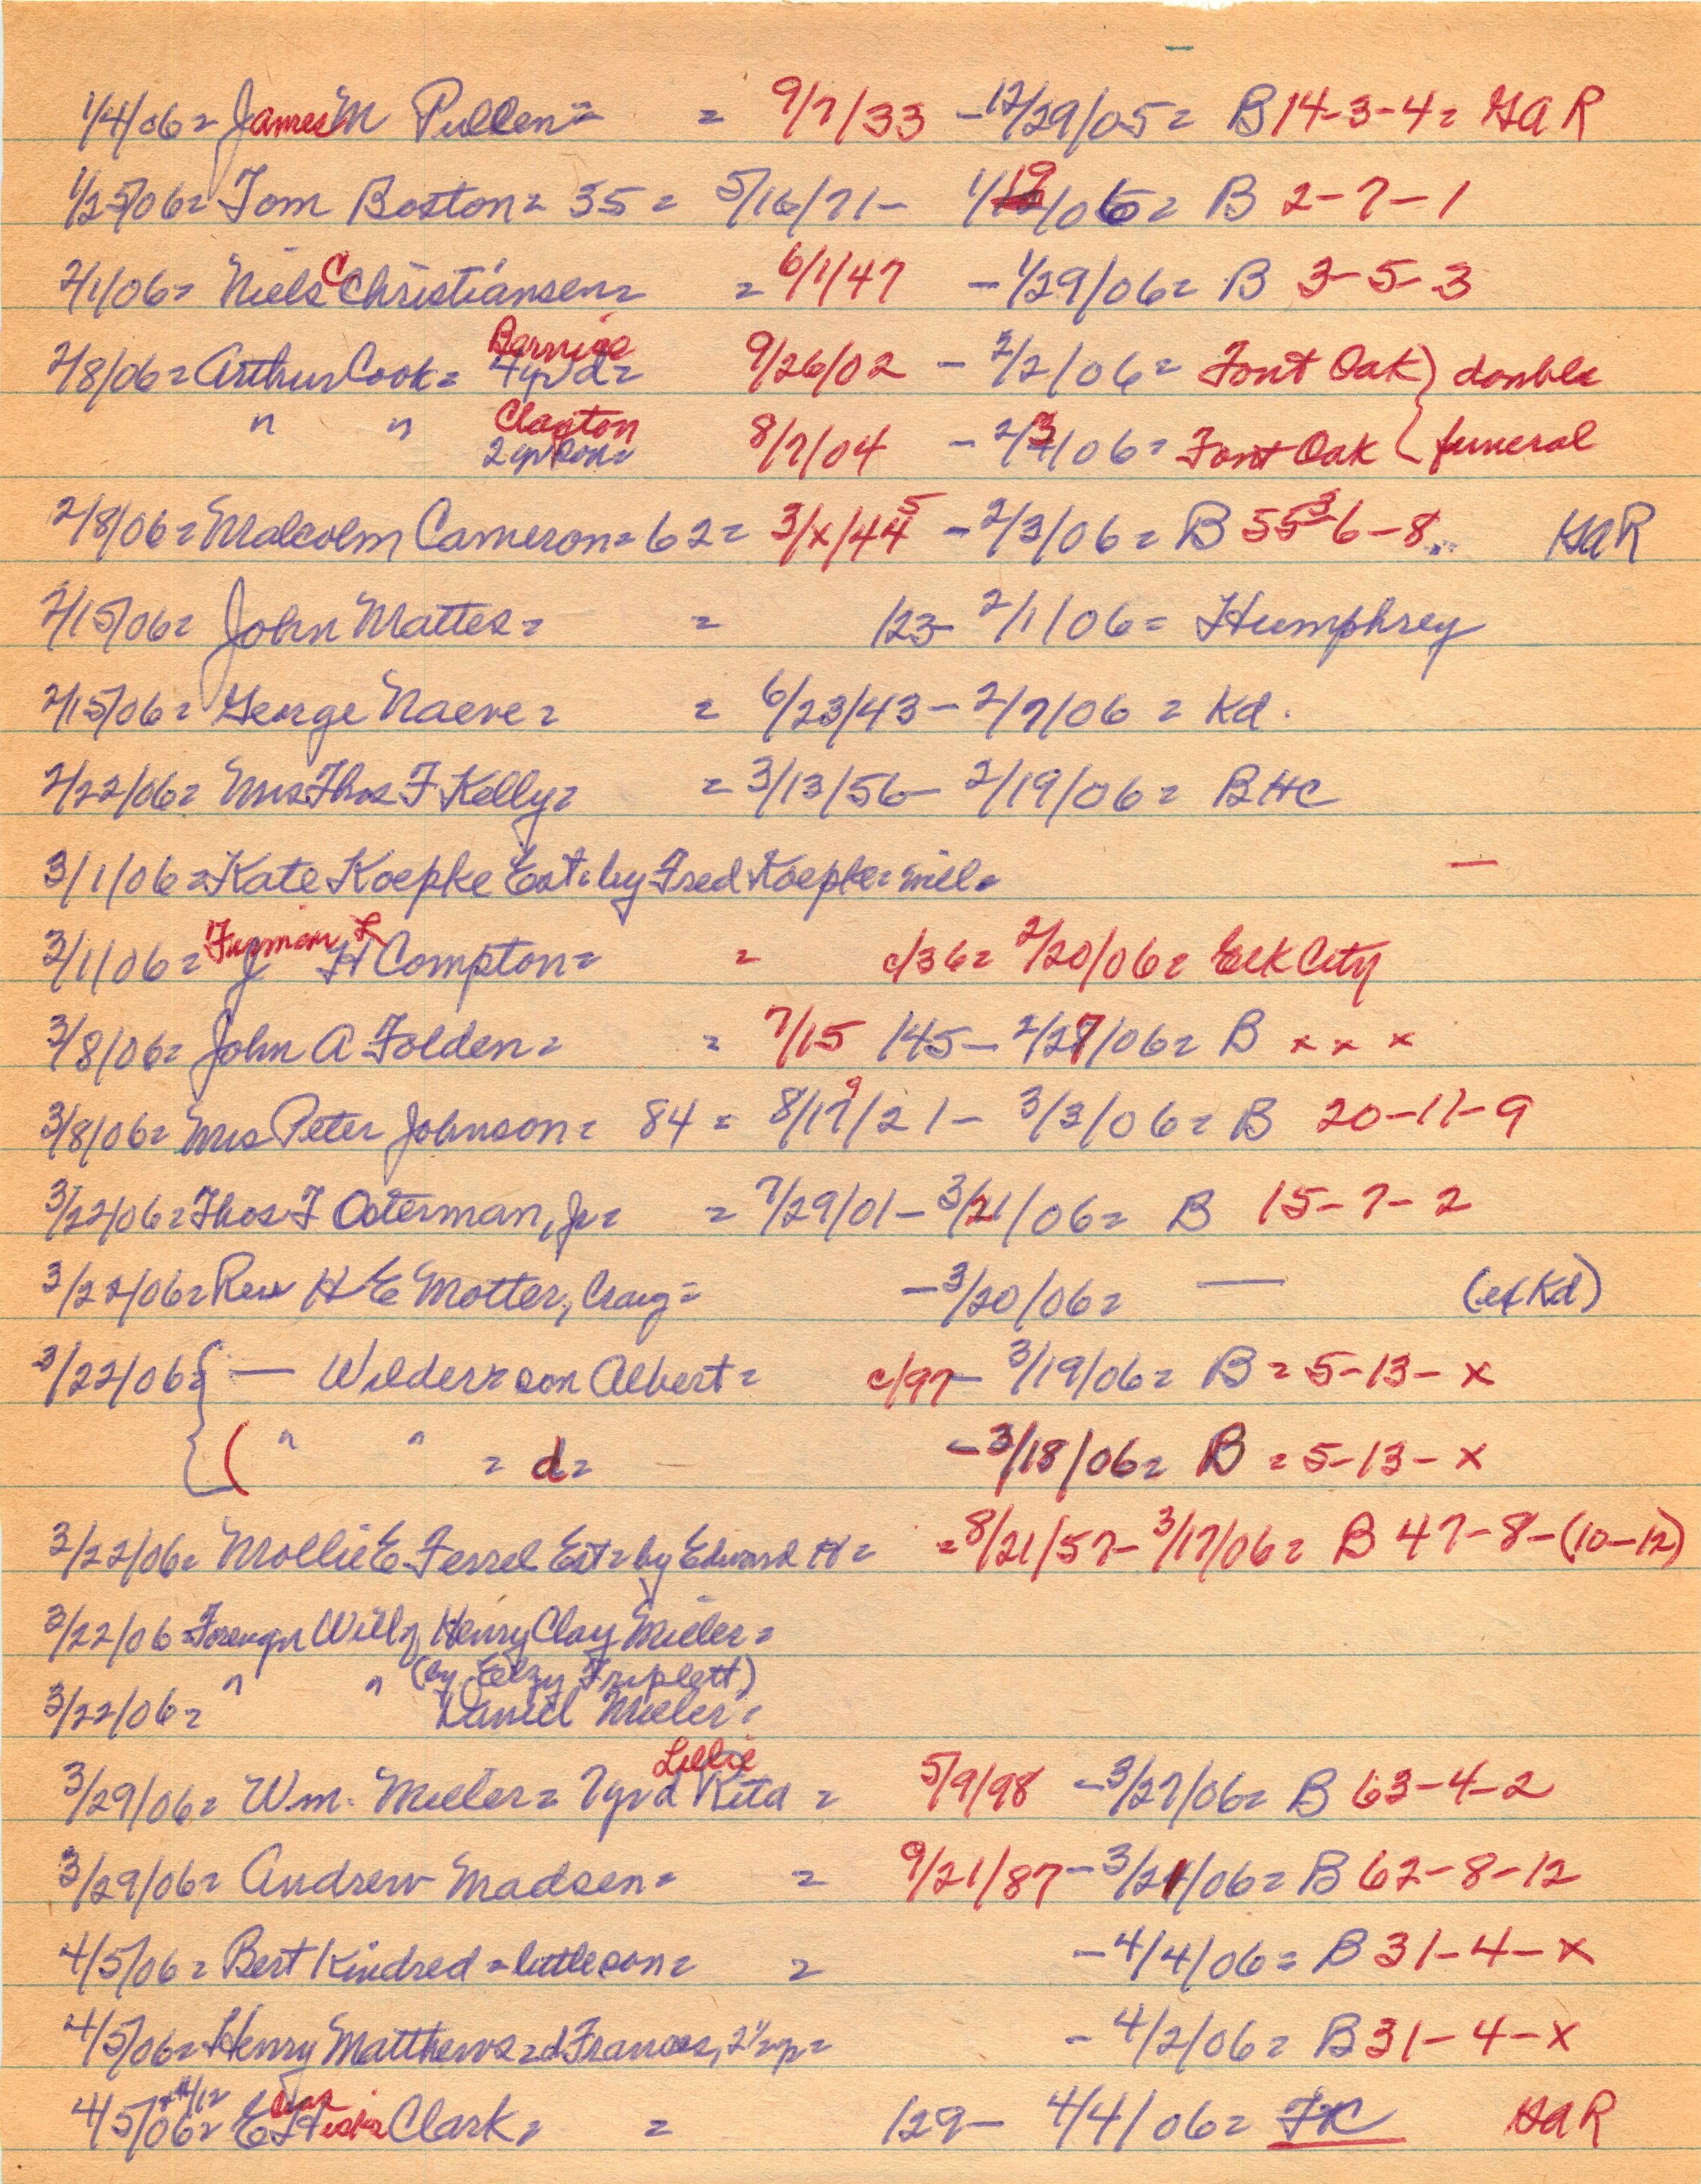 1/4/06 = James M Pullen = = 9/7/33 - 12/29/05 = B 14-3-4 = GAR
1/25/06 = Tom Boston = 35 = 5/16/71 - 1/19/06 = B 2-7-1
2/1/06 = Niels C Christiansen = = 6/1/47 - 1/29/06 = B 3-5-3
Bernice
2/8/06 = Arthur Cook = 4yr d = 9/26/02 - 2/2/06 = Font Oak) double
Clayton
" " 2 yr son = 8/7/04 - 2/3/06 = Font Oak ( funeral
2/8/06 = Malcolm Cameron = 62 = 3/x/44 5 - 2/3/06 = B 55 3 6-8 GAR
2/15/06 = John Mattes = = /23 - 2/1/06 = Humphrey
2/15/06 = George Naeve = = 6/23/43 - 2/7/06 = Kd.
2/22/06 = Mrs Thos F Kelly = = 3/13/56 - 2/19/06 = BHC
3/1/06 = Kate Koepke Est = by Fred Koepke = will = —
Furman L
3/1/06 = J H Compton = = c/36 = 2/20/06 = Elk City
3/8/06 = John A Folden = = 7/15 /45 - 2/27/06 = B x x x
3/8/06 = Mrs Peter Johnson = 84 = 8/17 9/21 - 3/3/06 = B 20-11-9
3/22/06 = Thos F Osterman, Jr = = 7/29/01 - 3/21/06 = B 15-7-2
3/22/06 = Rev H E Motter, Craig = - 3/20/06 = — (ex Kd)
3/22/06 = { — Wilder = son Albert = c/97 - 3/19/06 = B = 5-13-x
( " " = d = - 3/18/06 = B = 5-13-x
3/22/06 = Mollie E Ferrel Est = by Edward H = = 8/21/57 - 3/17/06 = B 47-8-(10-12)
3/22/06 = Foreign Will of Henry Clay Miller =
(by Elzy Triplett)
3/22/06 = " " Daniel Miller =
Lillie
3/29/06 = Wm. Miller = 7yr d Rita = 5/9/98 - 3/27/06 = B 63-4-2
3/29/06 = Andrew Madsen = = 9/21/87 - 3/21/06 = B 62-8-12
4/5/06 = Bert Kindred = little son = = - 4/4/06 = B 31-4-x
4/5/06 = Henry Matthews = d Frances, 2½ yr = - 4/2/06 = B 31-4-x
+ 4/12
4/5/06 = E Clark = = /29 - 4/4/06 = FK GAR